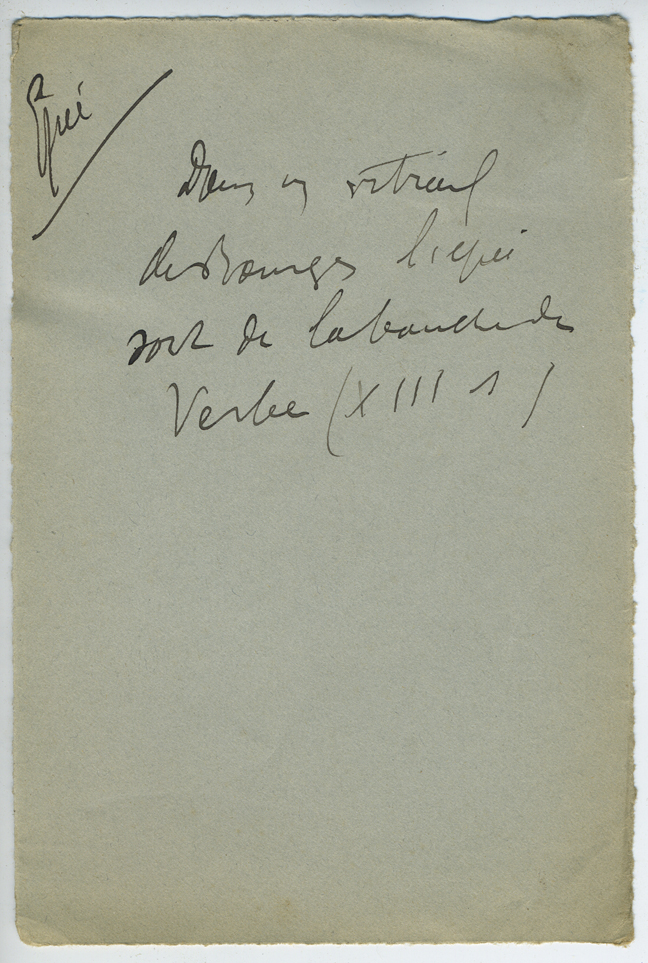 Épée
Dans un vitrail
de Bourges l'épée
sort de la bouche du
Verbe (XIII s)